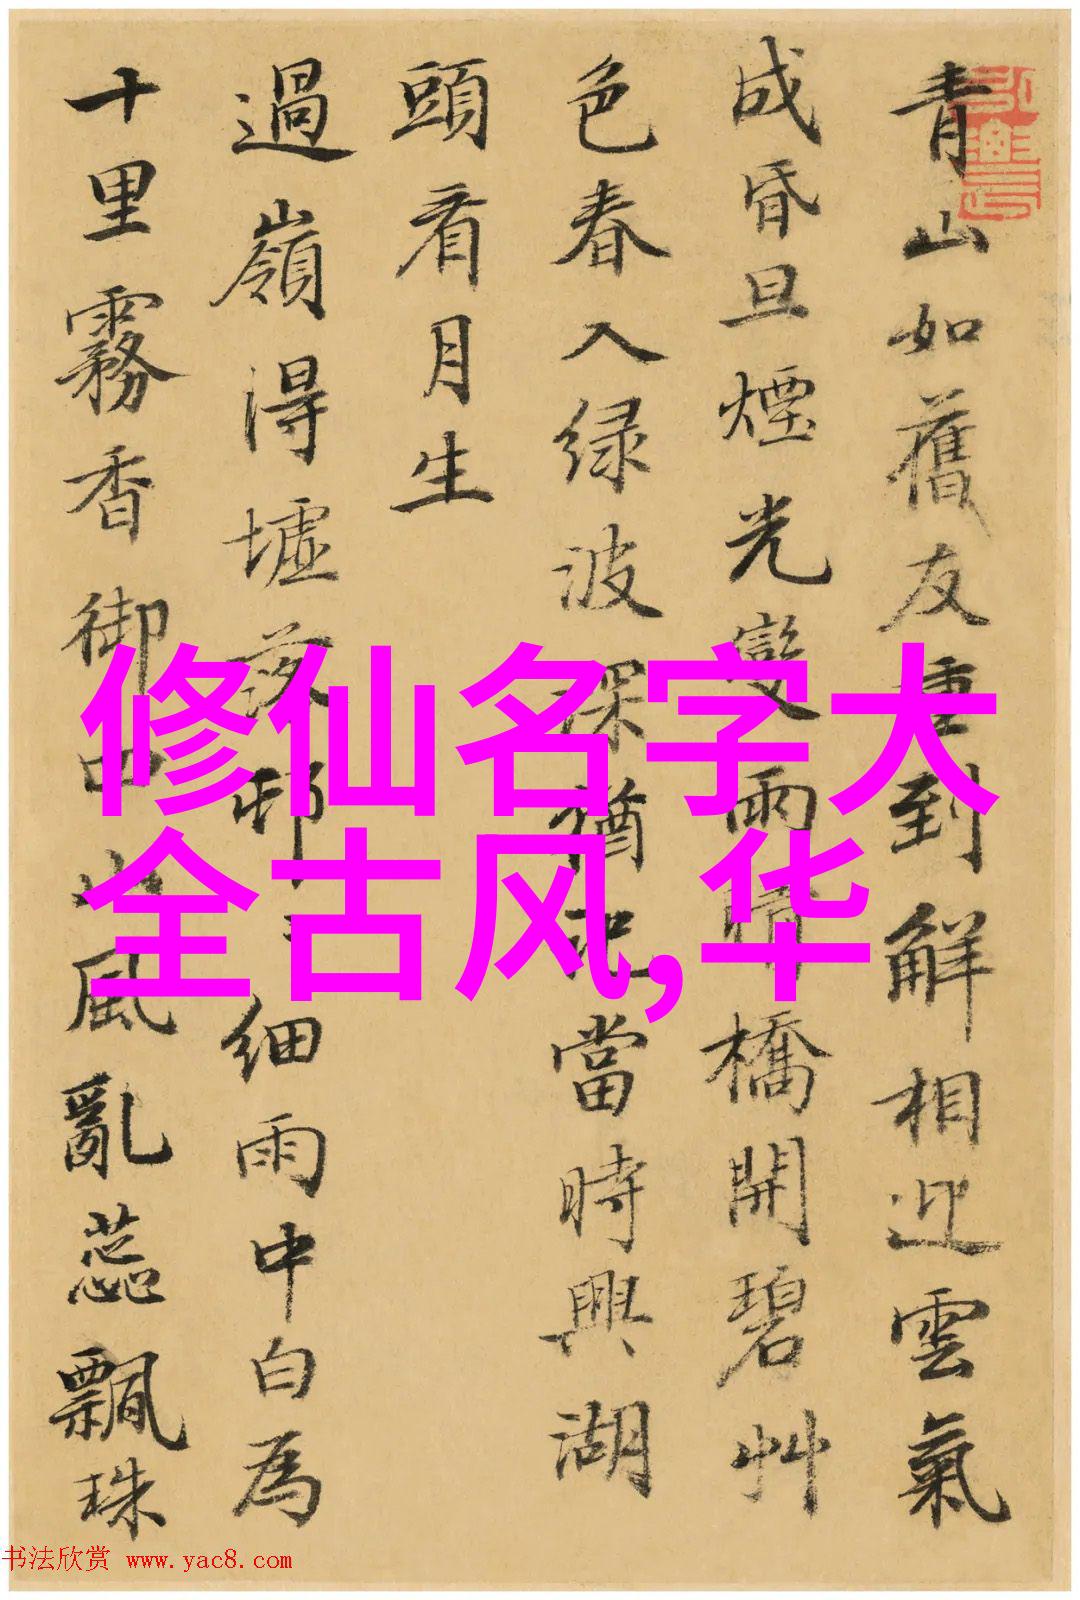 青山如舊友重到解相迎雲氣
成昏旦煙光變雨晴橋開碧艸
色春入绿波深猶記當時興湖
頭看月生
過嶺得墟落邨細雨中白為
十里霧香御口山風亂蕊飄珠
修仙名字大
全古风,华
书法欣赏 www.yac8.com